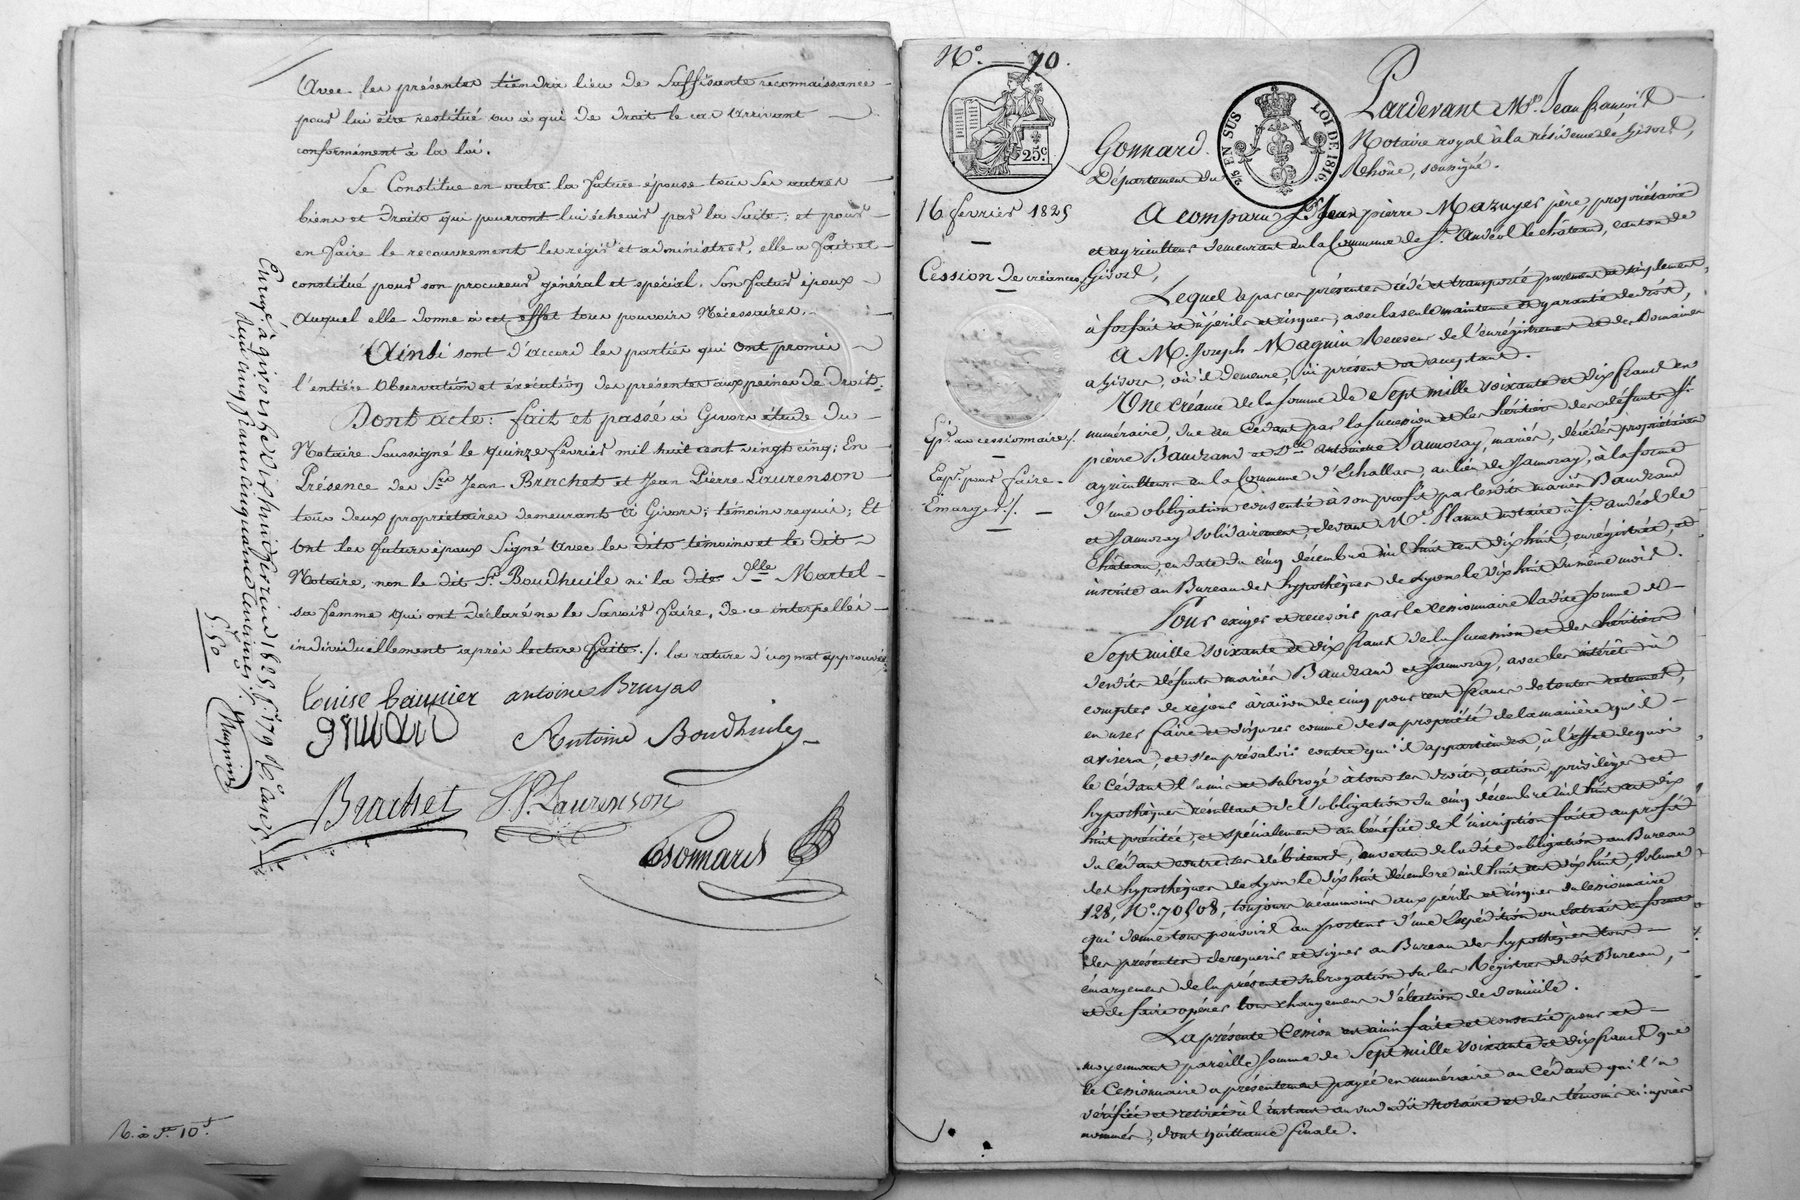 Avec les présentes tiendra lieu de Suffisante reconnaissance
pour lui être restitué ou à qui de droit le cas arrivant
conformément à la loi.
Se Constitue en outre la future épouse tous ses autres
biens et droits qui pourront lui échoir par la Suite; et pour
en faire le recouvrement les régir et administrer, elle a fait et
constitué pour son procureur général et spécial, Son futur époux
auquel elle donne à cet effet tous pouvoirs Nécessaires.
Ainsi sont d'accord les parties qui ont promis
l'entière observation et exécution des présentes aux peines de Droit.
Dont acte: fait et passé à Givors étude du
Notaire Soussigné le quinze février mil huit cent vingt cinq; En
Présence des Srs Jean Brachet et Jean Pierre Laurenson
tous deux propriétaires demeurant à Givors; témoins requis; Et
Ont les futurs époux Signé avec les dits témoins et le dit
Notaire, non le dit Sr Boudhuile ni la dite dlle Martel
sa femme qui ont déclaré ne le Savoir faire, de ce interpellés
individuellement après lecture faite ./. la rature d'un mot approuvée
Louise antoine Bruyas
Antoine Boudhuile
Brachet J.P. Laurenson
Gonnard
Enregé à givors le dix huit février 1825, fo 179 Ro
Reçu cinq francs cinquante centimes ./.
5,,50
Maguin
N° 70.
25c
2/5 EN SUS LOI DE 1816
Pardevant Me Jean françois
Gonnard Notaire royal à la résidence de Givors,
Département du Rhône, soussigné.
16 février 1825
A comparu Sr Jean pierre Mazuyer père, propriétaire
et agriculteur demeurant en la Commune de St Andéol le château, canton de
Cession de créances Givors,
Lequel a par ces présentes cédé et transporté purement et simplement,
à forfait et à périls et risques, avec la seule maintenue et garantie de droit,
A M. Joseph Maguin Receveur de l'enrégistrement et des Domaines
à Givors, où il demeure, ici présent et acceptant.
Une créance de la somme de Sept mille soixante et dix francs en
numéraire, due au Cédant par la succession et les héritiers des défunts Sr
Exp. au cessionnaire ./.
pierre Baudrand et De antoinette Jamoray, mariés, décédés propriétaires
agriculteurs en la Commune d'Echallas, au lieu de Jamoray, à la forme
Exp. pour faire
Emarger ./.
d'une obligation consentie à son profit par lesdits mariés Baudrand
et Jamoray solidairement, devant Me notaire à St andéol le
Château, en date du cinq décembre mil huit cent dix huit, enrégistrée, et
inscrite au Bureau des hypothèques de Lyon le dix huit du même mois.
Pour exiger et recevoir par le Cessionnaire ladite somme de
Sept mille soixante et dix francs de la succession et des héritiers
desdits défunts mariés Baudrand et Jamoray, avec les intérêts à
compter de ce jour à raison de cinq pour cent francs de toutes retenues,
en user faire et disposer comme de sa propriété de la manière qu'il
avisera, et s'en prévaloir contre qui il appartiendra, à l'effet de quoi
le Cédant l'a mis et subrogé à tous ses droits, actions, privilèges et
hypothèques résultant de l'obligation du cinq décembre mil huit cent dix
huit précitée, et spécialement au bénéfice de l'inscription faite au profit
du cédant contre ses débiteurs, en vertu de ladite obligation au Bureau
des hypothèques de Lyon le dix huit décembre mil huit cent dix huit, Volume
128, N° 70508, toujours néanmoins aux périls et risques du Cessionnaire
qui donne tous pouvoirs au porteur d'une Expédition ou Extrait en forme
des présentes de requérir et signer au Bureau des hypothèques tous
émargement de la présente subrogation sur les Régistres dudit Bureau,
et de faire opérer tous changemens d'élection de domicile.
La présente Cession est ainsi faite et consentie pour et
moyennant pareille somme de Sept mille soixante et dix francs que
le Cessionnaire a présentement payée en numéraire au Cédant qui l'a
vérifiée et retirée à l'instant au vu dudit Notaire et des témoins ci après
nommés, dont quittance finale.